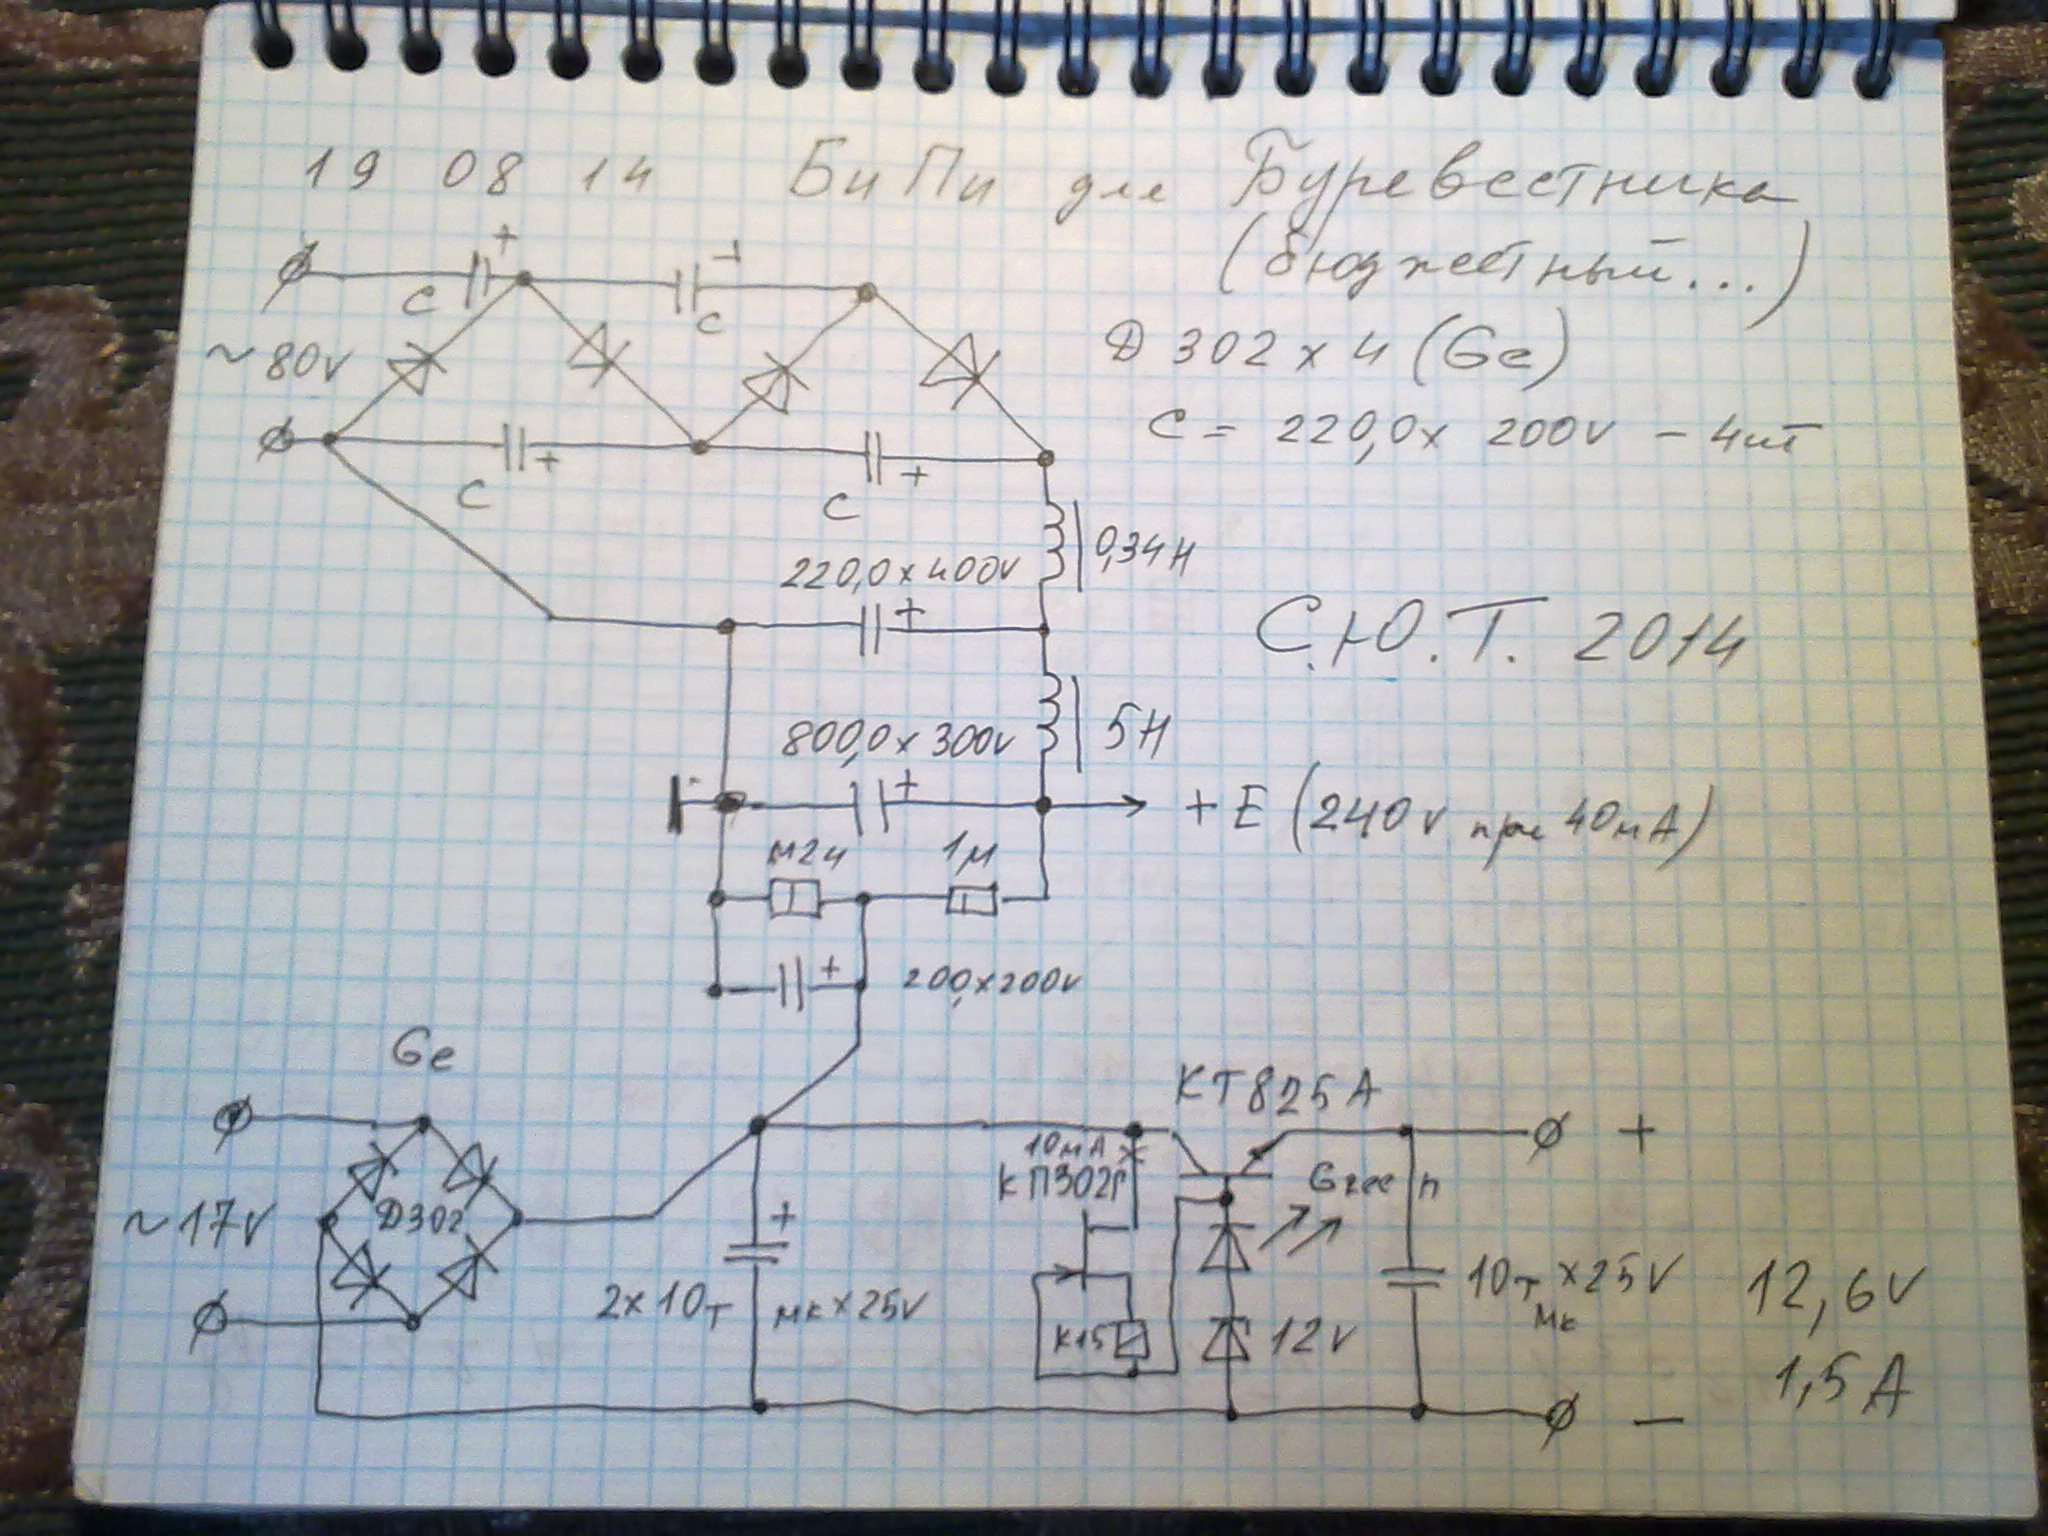 19 08 14 БиПи для Буревестника
(бюджетный...)
+ +
C C
~80v
Д302 x 4 (Ge)
C = 220,0x 200v - 4шт
+ +
C C
0,34H
220,0 x 400v
+
С.Ю.Т. 2014
5H
800,0 x 300v
+
+E (240v при 40мА)
м24 1м
+ 200,x200v
Ge
~17v
Д302
+
2x10т мк x 25v
КТ825А
10мА
КП302Г
к15
Green
12v
10т x 25v
мк
+
12,6v
1,5A
−